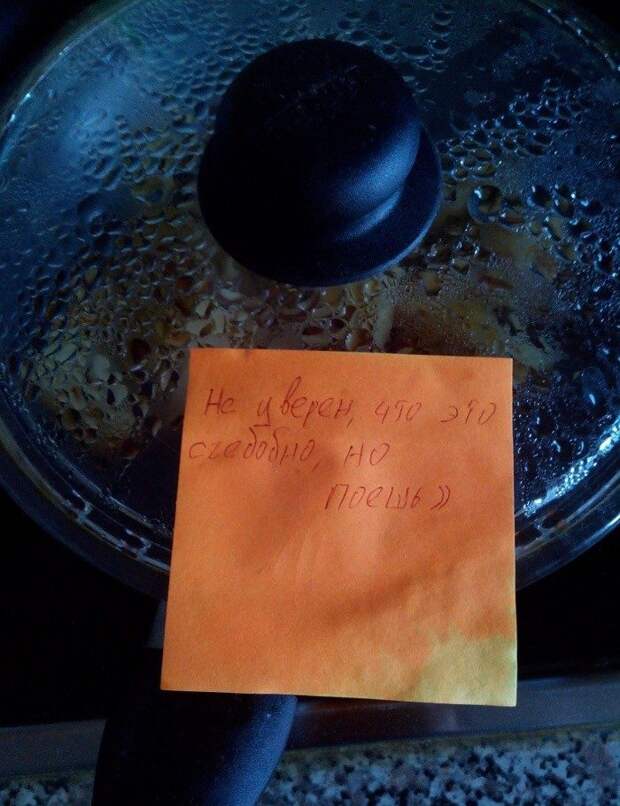 Не уверен, что это
съедобно, но
поешь))